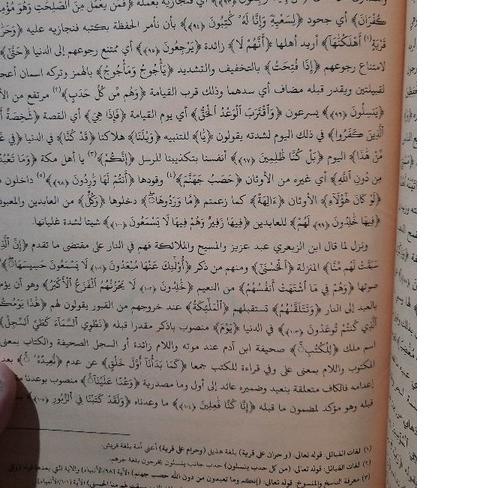 كُفْرَانَ﴾ أي جحود ﴿لِسَعْيِهِ وَإِنَّا لَهُ كَاتِبُونَ ﴿٩٤﴾﴾ بأن نأمر الحفظة بكتبه فنجازيه عليه
قَرْيَةٍ﴾ ﴿أَهْلَكْنَاهَا﴾ أريد أهلها ﴿أَنَّهُمْ لَا﴾ زائدة ﴿يَرْجِعُونَ ﴿٩٥﴾﴾ أي ممتنع رجوعهم إلى الدنيا ﴿حَتَّى﴾
لامتناع رجوعهم ﴿إِذَا فُتِحَتْ﴾ بالتخفيف والتشديد ﴿يَأْجُوجُ وَمَأْجُوجُ﴾ بالهمز وتركه اسمان
لقبيلتين ويقدر قبله مضاف أي سدهما وذلك قرب القيامة ﴿وَهُم مِّن كُلِّ حَدَبٍ﴾ مرتفع من
﴿يَنسِلُونَ ﴿٩٦﴾﴾ يسرعون ﴿وَاقْتَرَبَ الْوَعْدُ الْحَقُّ﴾ أي يوم القيامة ﴿فَإِذَا هِيَ﴾ أي القصة ﴿شَاخِصَةٌ
الَّذِينَ كَفَرُوا﴾ في ذلك اليوم لشدته يقولون ﴿يَا﴾ للتنبيه ﴿وَيْلَنَا﴾ هلاكنا ﴿قَدْ كُنَّا﴾ في الدنيا ﴿فِي
مِّنْ هَذَا﴾ اليوم ﴿بَلْ كُنَّا ظَالِمِينَ ﴿٩٧﴾﴾ أنفسنا بتكذيبنا للرسل ﴿إِنَّكُمْ﴾ يا أهل مكة ﴿وَمَا
مِن دُونِ اللَّهِ﴾ أي غيره من الأوثان ﴿حَصَبُ جَهَنَّمَ﴾ وقودها ﴿أَنتُمْ لَهَا وَارِدُونَ ﴿٩٨﴾﴾ داخلون
﴿لَوْ كَانَ هَؤُلَاءِ﴾ الأوثان ﴿آلِهَةً﴾ كما زعمتم ﴿مَّا وَرَدُوهَا﴾ دخلوها ﴿وَكُلٌّ﴾ من العابدين والمعبودين
فِيهَا خَالِدُونَ ﴿٩٩﴾ لَهُمْ﴾ للعابدين ﴿فِيهَا زَفِيرٌ وَهُمْ فِيهَا لَا يَسْمَعُونَ ﴿١٠٠﴾﴾ شيئا لشدة غليانها.
ونزل لما قال ابن الزبعرى عبد عزير والمسيح والملائكة فهم في النار على مقتضى ما تقدم ﴿إِنَّ
سَبَقَتْ لَهُم مِّنَّا﴾ المنزلة ﴿الْحُسْنَى﴾ ومنهم من ذكر ﴿أُولَئِكَ عَنْهَا مُبْعَدُونَ ﴿١٠١﴾ لَا يَسْمَعُونَ حَسِيسَهَا﴾
صوتها ﴿وَهُمْ فِي مَا اشْتَهَتْ أَنفُسُهُمْ﴾ من النعيم ﴿خَالِدُونَ ﴿١٠٢﴾ لَا يَحْزُنُهُمُ الْفَزَعُ الْأَكْبَرُ﴾ وهو أن
بالعبد إلى النار ﴿وَتَتَلَقَّاهُمُ﴾ تستقبلهم ﴿الْمَلَائِكَةُ﴾ عند خروجهم من القبور يقولون لهم ﴿هَذَا يَوْمُكُمُ
الَّذِي كُنتُمْ تُوعَدُونَ ﴿١٠٣﴾﴾ في الدنيا ﴿يَوْمَ﴾ منصوب باذكر مقدرا قبله ﴿نَطْوِي السَّمَاءَ كَطَيِّ السِّجِلِّ﴾
اسم ملك ﴿لِلْكِتَابِ﴾ صحيفة ابن آدم عند موته واللام زائدة أو السجل الصحيفة والكتاب بمعنى
المكتوب واللام بمعنى على وفي قراءة للكتب جمعا ﴿كَمَا بَدَأْنَا أَوَّلَ خَلْقٍ﴾ عن عدم ﴿نُّعِيدُهُ﴾ بعد
إعدامه فالكاف متعلقة بنعيد وضميره عائد إلى أول وما مصدرية ﴿وَعْدًا عَلَيْنَا﴾ منصوب بوعدنا
قبله وهو مؤكد لمضمون ما قبله ﴿إِنَّا كُنَّا فَاعِلِينَ ﴿١٠٤﴾﴾ ما وعدناه ﴿وَلَقَدْ كَتَبْنَا فِي الزَّبُورِ
(١) لغات القبائل: قوله تعالى: (وحرام على قرية) بلغة هذيل
(٢) لغات القبائل: قوله تعالى: (من كل حدب ينسلون) حدب جانب ينسلون يخرجون بلغة جرهم.
(٣) معرفة الناسخ والمنسوخ: قوله تعالى: (إنكم وما تعبدون من دون الله حصب جهنم)